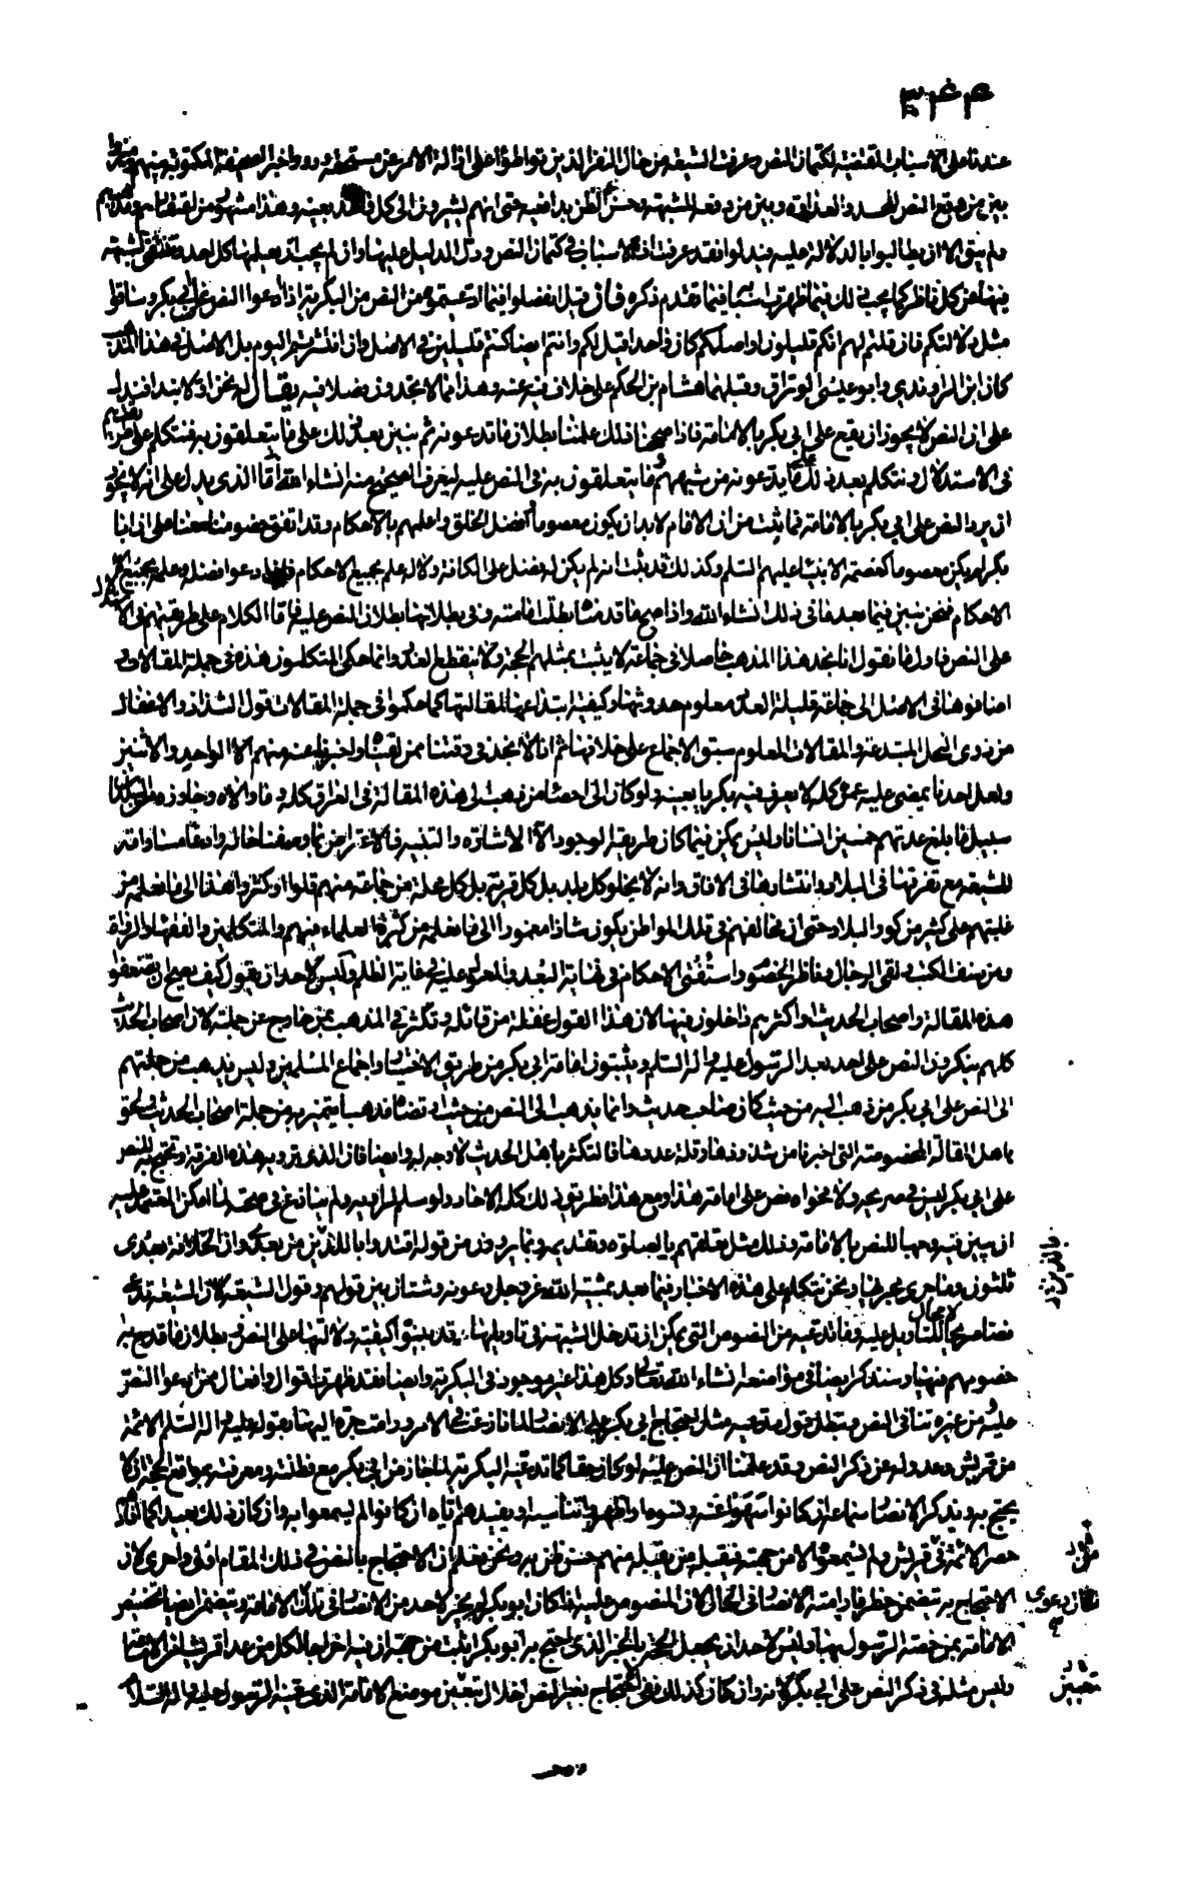 عندنا على الاسباب المقتضية لكتمان النص وعرفت الشيعة من حال النفر الذين تواطؤا على ازالة الامر عن مستحقه ورووا خبر الصحيفة المكتوبة بينهم وميزوا
بين من دفع النص للحسد والعداوة وبين من دفعه للشبهة وحسن الظن بدافعيه حتى انهم يشيرون الى كل واحد بعينه وهذا مشهور من
ولم يبق الا ان يطالبوا بالدلالة عليه فيدلوا فقد عرفت اذا الاسباب في كتمان النص ودل الدليل عليها وان لم يجب ان يعلمها كل احد
فيها عن كل ناظر كما يجب في ذلك فيما ظهرت اسبابه فيما تقدم ذكره فان قيل افصلوا فيما ادعيتموه من النص من البكرية اذا ادعوا النص على ابي بكر وساقوا
مثل دلالتكم فان قلتم لهم انكم قليلون او اصلكم كان واحدا قيل لكم وانتم ايضا كنتم قليلين في الاصل وان انتشرتم اليوم بل الاصل في هذا المذهب
كان ابن الراوندي وابو عيسى الوراق وقبلهما هشام بن الحكم على خلاف فيه عنه وهذا مما لا تجدون فصلا فيه يقال له نحن اولا نبتدئ فندل
على ان النص لا يجوز ان يقع على ابي بكر بالامامة فاذا صح لنا ذلك علمنا بطلان ما تدعونه ثم نبين بعد ذلك على ما يتعلقون به فنتكلم على
في الاستدلال ونتكلم بعد ذلك على ما يدعونه من شبههم وما يتعلقون به في النص عليه ليعرف الصحيح منه انشاء الله اما الذي يدل على انه لا يجوز
ان يرد النص على ابي بكر بالامامة فما يثبت من ان الامام لا بد ان يكون معصوما افضل الخلق واعلمهم بالاحكام وقد اتفق خصومنا معنا على ان ابا
بكر لم يكن معصوما كعصمة الانبياء عليهم السلم وكذلك قد يثبت انه لم يكن له فضل على الكافة ولا له علم بجميع الاحكام دعوا فضله وعلمه بجميع
الاحكام فنحن نبين فيما بعد ما في ذلك انشاء الله واذا صح ما قدمناه بطلت امامته وفي بطلانها بطلان النص عليه فاما الكلام على طريقتهم في الاستدلال
على النص فاول ما نقول انا نجد هذا المذهب حاصلا في جماعة لا يثبت بمثلهم الحجة ولا ينقطع العذر وانما حكى المتكلمون هذه في جملة المقالات
اضافوها في الاصل الى جماعة قليلة العدد معلوم حدوثها وكيفية ابتداعها لمقالتها كما حكموا في جملة المقالات قول الشذاذ والاغفال
من ذوي النحل المبتدعة والمقالات المعلوم سبق الاجماع على خلافها ثم انا لا نجد في وقتنا ممن لقيناه واخبرنا عنه منهم الا الواحد والاثنين
ولعل احدنا يمضي عليه عمره كله لا يعرف فيه بكريا بعينه ولو كان الى احصاء من ذهب الى هذه المقالة في العراق كله وما والاه وجاوزه من البلدان
سبيل لما بلغ عدتهم خمسين انسانا وليس يمكن فيما كان طريقه الوجود الا الاشارة والتنبيه فالاعتراض بما وصفنا حاله وادعاء مساواته
للشيعة مع تفرقها في البلاد وانتشارها في الافاق وانه لا يخلو كل بلد بل كل قرية بل كل محلة من جماعة منهم قلوا او كثروا هذا الى ما نعلمه من
غلبتهم على كثير من كور البلاد حتى ان مخالفهم في تلك المواطن يكون شاذا مغمورا الى ما نعلمه من كثرة العلماء منهم والمتكلمين والفقهاء والرواة
ومن صنف الكتب ولقي الرجال وناظر الخصوم واستفتي الاحكام في نهاية البعد والمعول عليه في غاية الظلم وليس لاحد ان يقول كيف يصح ان
هذه المقالة واصحاب الحديث واكثرهم داخلون فيها لان هذا القول غفلة من قائله وتكثر في المذهب بمن خارج عن جملته لان اصحاب الحديث
كلهم ينكرون النص على احد بعد الرسول عليه واله السلم ويثبتون امامة ابي بكر من طريق الاختيار واجماع المسلمين وليس يذهب من جملتهم
الى النص على ابي بكر من ذهب اليه من حيث كان صاحب حديث وانما يذهب الى النص من حيث ارتضاه مذهبا يتميز به من جملة اصحاب الحديث ويلحق
باهل المقالة المخصوصة التي اخبرنا من شذوذها وقلة عددها فالتكثر باهل الحديث لا وجه له وايضا فان الذي ترويه هذه الفرقة وتحتج به للنص
على ابي بكر ليس في صريحه ولا فحواه نص على امامته هذا ومع هذا فطريق ذلك كله الاحاد ولو سلم لراويه ولم ينازع في صحته لما امكن المعتمد عليه
ان يبين فيه وجها للنص بالامامة وذلك مثل تعلقهم بالصلوة وتقديمه وبما يروون من قوله اقتدوا باللذين من بعدي وان الخلافة بعدي
ثلثون وما جرى مجراها ونحن نتكلم على هذه الاخبار فيما بعد بمشية الله عز وجل وعونه وشتان بين قولهم وقول الشيعة لان الشيعة تدعي
نصا صريحا لا مجال للتاويل عليه وما تدعيه من النصوص التي يمكن ان تدخل الشبهة في تاويلها قد بينوا كيفية دلالتها على النص وبطلان ما قدح به
خصومهم فيها وسنذكر ايضا في مواضعه انشاء الله تعالى وكل هذا غير موجود في البكرية وايضا فقد ظهرت اقوال وافعال ممن ادعوا النص
عليه ومن غيره تنافي النص وتبطل قول مدعيه مثل احتجاج ابي بكر على الانصار لما نازعته في الامر ورامت جره اليها بقوله عليه واله السلم الائمة
من قريش وعدوله عن ذكر النص وقد علمنا ان النص عليه لو كان حقا كما تدعيه البكرية لما جاز من ابي بكر مع فطنته ومعرفته بمواقع الحجة ان لا
يحتج به ويذكر الانصار سماعه ان كانوا سهوا عنه ونسوه او اظهروا تناسيه او يفيدهم اياه ان كانوا لم يسمعوا به وان كان ذلك بعيدا كما افاد
حصر الائمة في قريش ولم يسمعوا الا من جهته فيقبله من يقبله منهم حسن ظن به ونحن نعلم ان الاحتجاج بالنص في ذلك المقام اولى واحرى لان
الاحتجاج به يتضمن حظر ما رامته الانصار في الحال لان المنصوص عليه اذا كان ابو بكر لم يجز لاحد من الانصار في تلك الامامة ويتضمن ايضا تخصيص
الامامة بمن خصه الرسول بها وليس لاحد ان يجعل الخبر الذي احتج به ابو بكر اثبت من حجة ان فيه اخراجا لكل من عدا قريشا من الامامة
وليس مثله في ذكر النص على ابي بكر لانه وان كان كذلك ففي الاحتجاج بغير النص اخلال بتعيين موضع الامامة الذي عينه الرسول عليه واله السلام